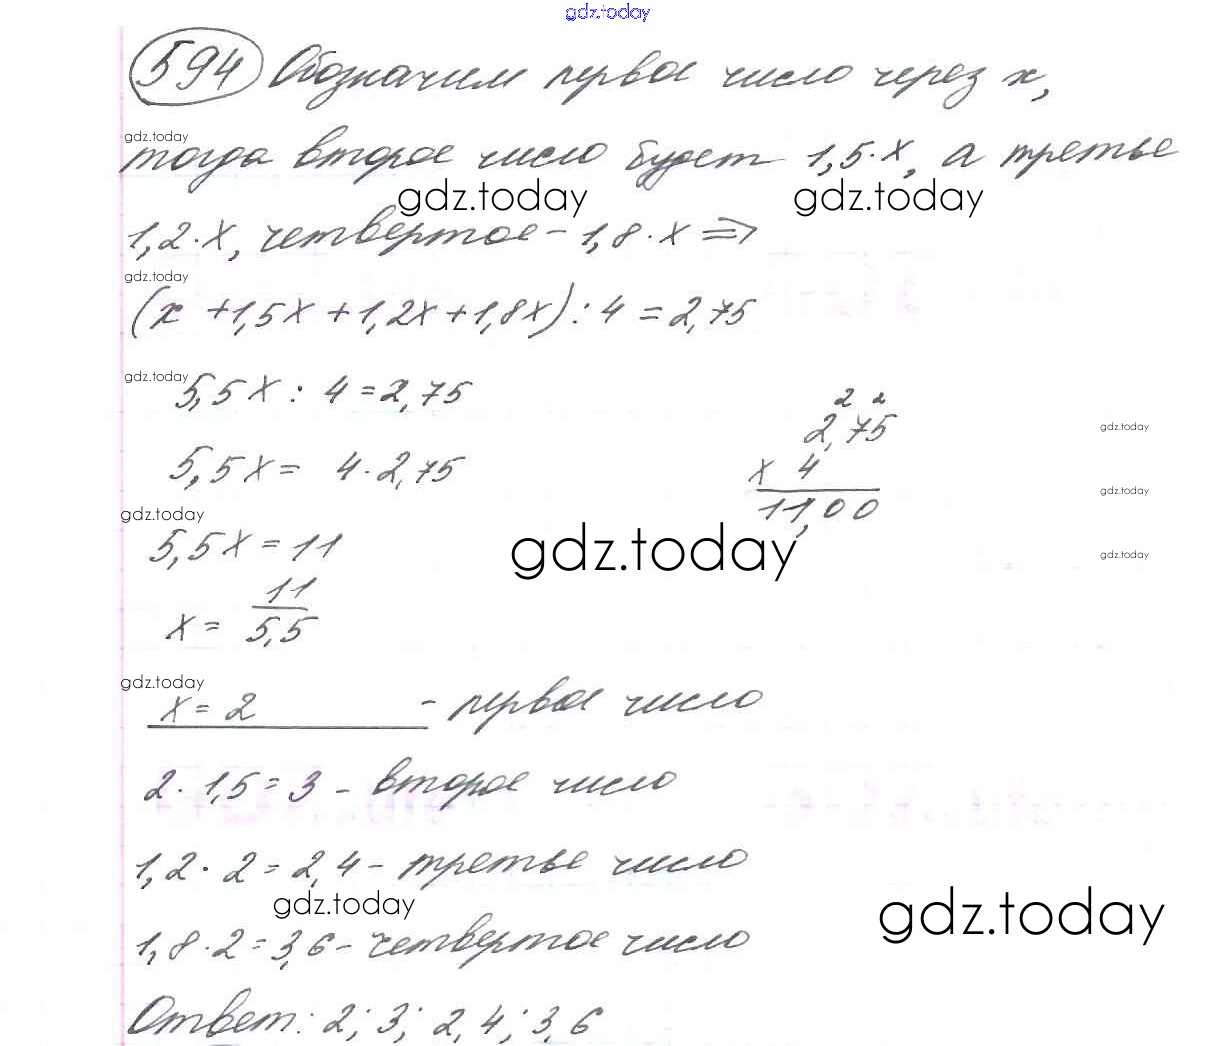 gdz.today
594 Обозначим первое число через x,
gdz.today
тогда второе число будет 1,5·x, а третье
gdz.today gdz.today
1,2·x, четвертое - 1,8·x =>
gdz.today
(x + 1,5x + 1,2x + 1,8x) : 4 = 2,75
gdz.today
5,5x : 4 = 2,75
2 2
2,75
gdz.today
5,5x = 4·2,75
x 4
gdz.today
11,00
gdz.today
5,5x = 11
gdz.today
gdz.today
11
x = 5,5
gdz.today
x = 2 - первое число
2·1,5 = 3 - второе число
1,2·2 = 2,4 - третье число
gdz.today
gdz.today
1,8·2 = 3,6 - четвертое число
Ответ: 2; 3; 2,4; 3,6